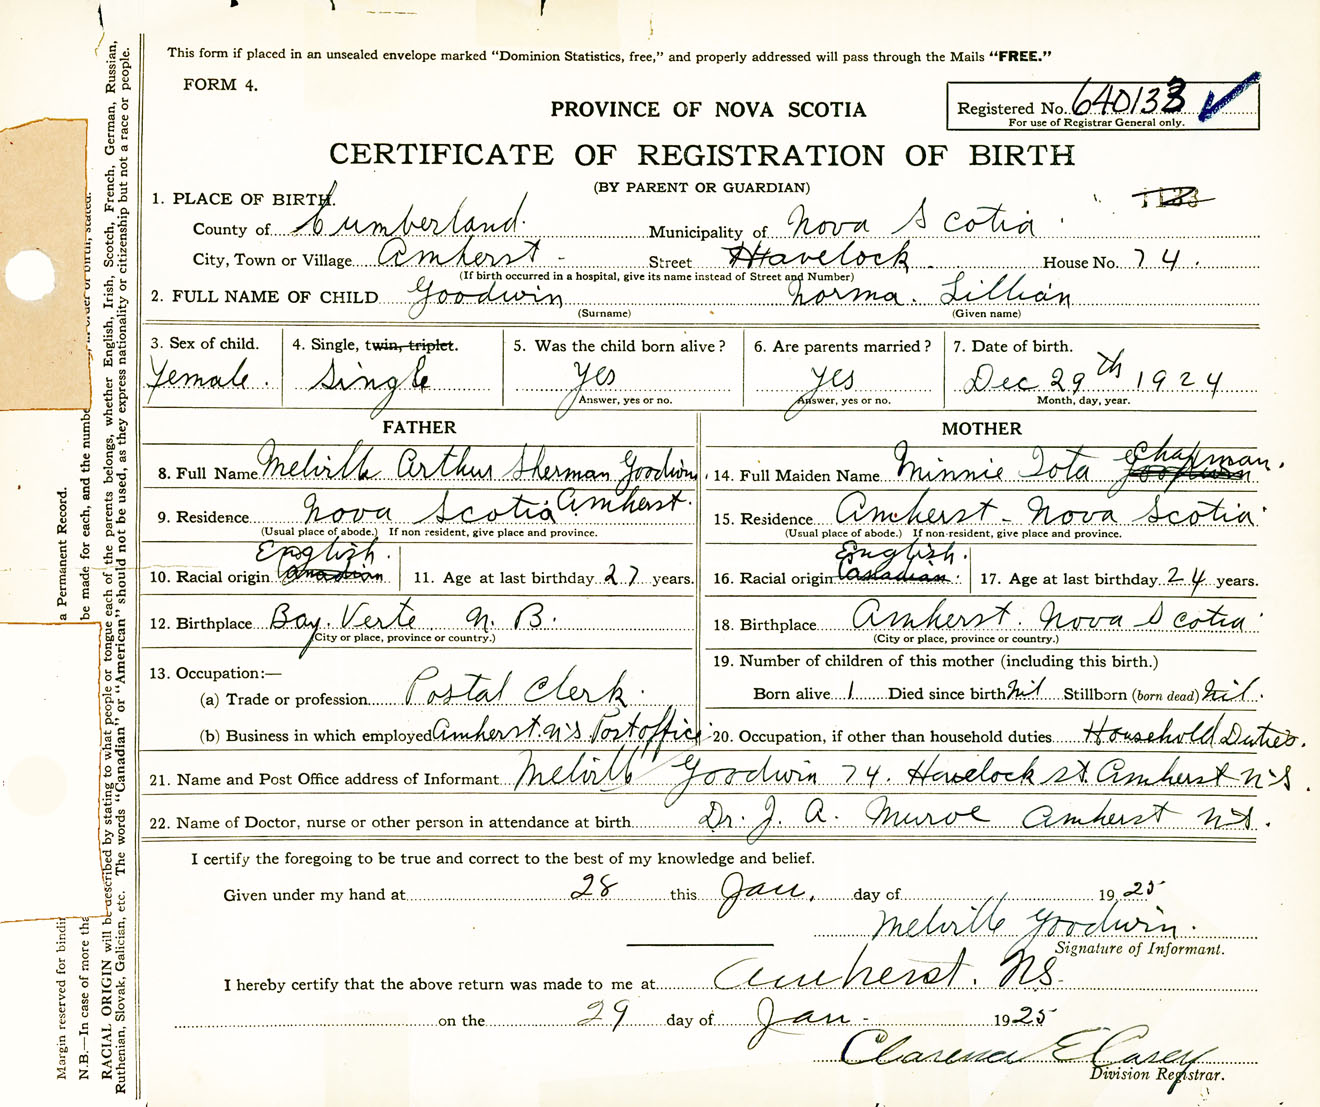 This form if placed in an unsealed envelope marked "Dominion Statistics, free," and properly addressed will pass through the Mails "FREE."
FORM 4.
Registered No. 640133
For use of Registrar General only.
PROVINCE OF NOVA SCOTIA
CERTIFICATE OF REGISTRATION OF BIRTH
(BY PARENT OR GUARDIAN)
1. PLACE OF BIRTH.
County of Cumberland. Municipality of Nova Scotia
City, Town or Village Amherst - Street Havelock House No. 74.
(If birth occurred in a hospital, give its name instead of Street and Number)
2. FULL NAME OF CHILD Goodwin Norma. Lillian
(Surname) (Given name)
3. Sex of child. 4. Single, twin, triplet. 5. Was the child born alive? 6. Are parents married? 7. Date of birth.
Female. Single Yes Yes Dec 29th 1924
Answer, yes or no. Answer, yes or no. Month, day, year.
FATHER MOTHER
8. Full Name Melville Arthur Sherman Goodwin. 14. Full Maiden Name Minnie Iota Chapman.
9. Residence Nova Scotia Amherst. 15. Residence Amherst - Nova Scotia
(Usual place of abode.) If non resident, give place and province. (Usual place of abode.) If non-resident, give place and province.
English. English.
10. Racial origin Canadian 11. Age at last birthday 27 years. 16. Racial origin Canadian. 17. Age at last birthday 24 years.
12. Birthplace Bay. Verte N. B. 18. Birthplace Amherst. Nova Scotia
(City or place, province or country.) (City or place, province or country.)
13. Occupation:— 19. Number of children of this mother (including this birth.)
(a) Trade or profession Postal Clerk. Born alive 1 Died since birth Nil Stillborn (born dead) Nil.
(b) Business in which employed Amherst. N.S. Post office 20. Occupation, if other than household duties Household Duties.
21. Name and Post Office address of Informant Melville Goodwin 74. Havelock St. Amherst N-S.
22. Name of Doctor, nurse or other person in attendance at birth Dr. J. A. Amherst N-S.
I certify the foregoing to be true and correct to the best of my knowledge and belief.
Given under my hand at 28 this Jan. day of 1925
Melville Goodwin.
Signature of Informant.
I hereby certify that the above return was made to me at Amherst. NS.
on the 29 day of Jan- 1925
Clarence E Casey
Division Registrar.
Margin reserved for bindin
a Permanent Record.
N.B.—In case of more tha
be made for each, and the numbe
in order of birth, stated.
RACIAL ORIGIN will be described by stating to what people or tongue each of the parents belongs, whether English, Irish, Scotch, French, German, Russian,
Ruthenian, Slovak, Galician, etc. The words "Canadian" or "American" should not be used, as they express nationality or citizenship but not a race or people.